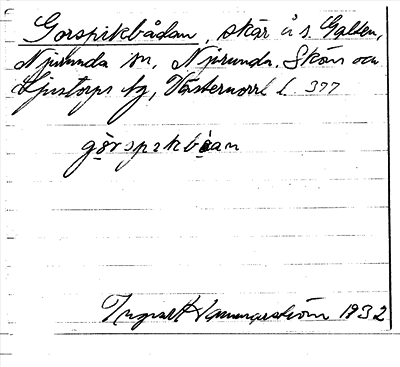 Gorspikbådan, skär å s. Galten,
Njurunda sn, Njurunda, Skön och
Ljustorps tg, Västernorrl l. 377
görspikbåan
Ingvar Hammarström 1932